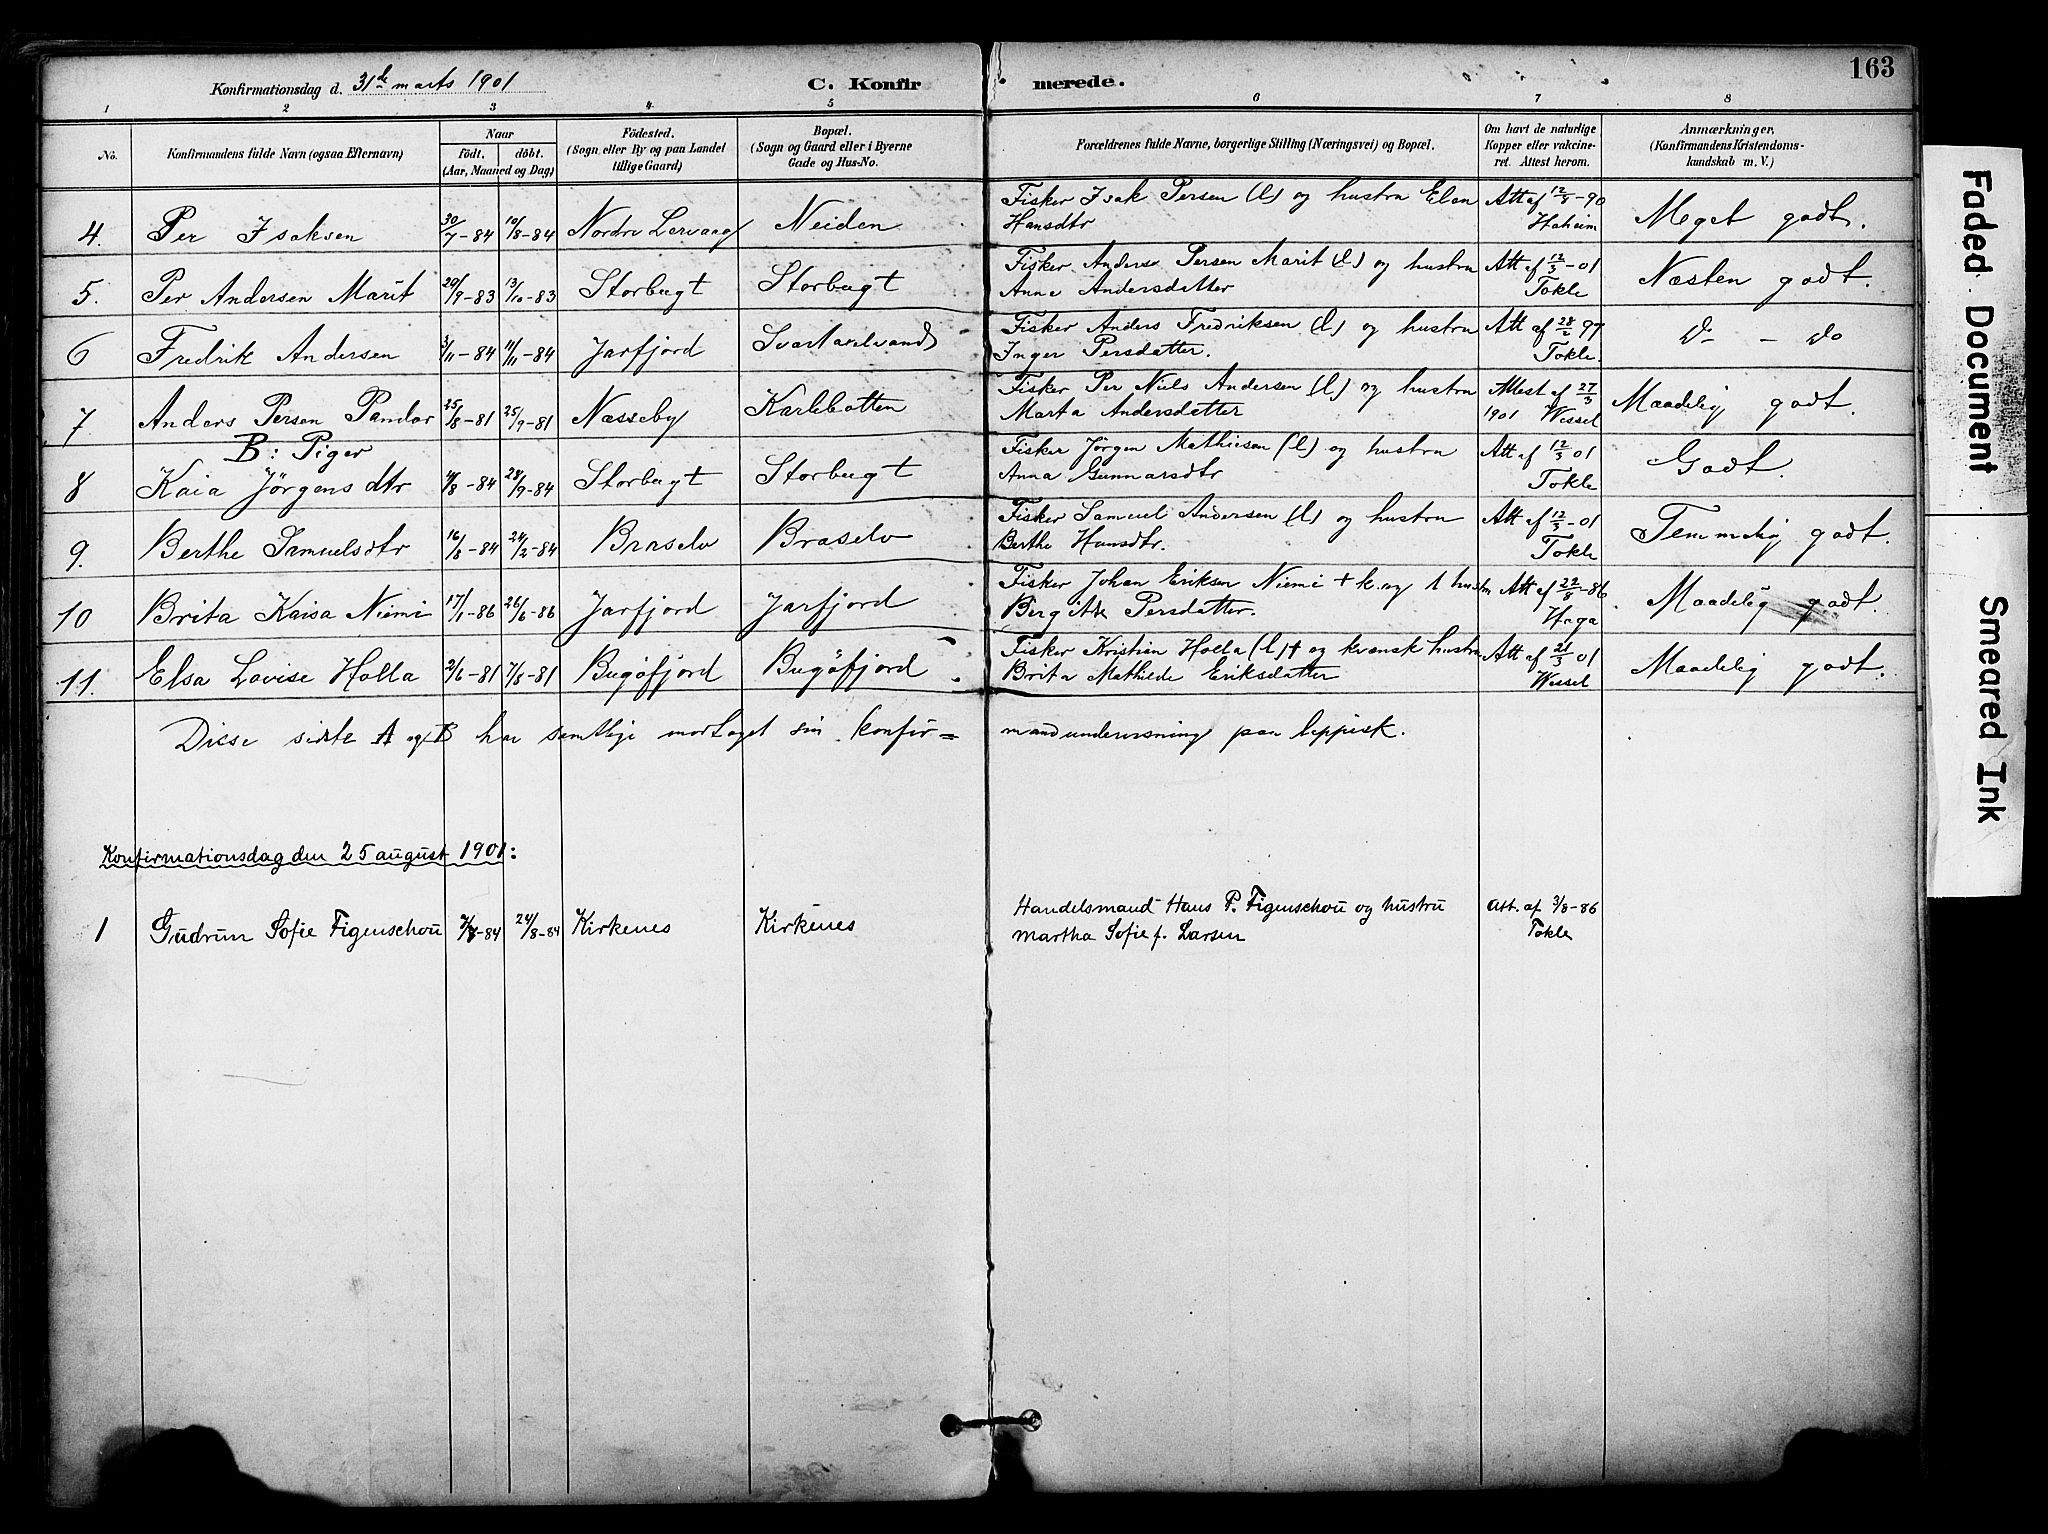 163
Konfirmationsdag d. 31de marts 1901 C. Konfirmerede.
1 2 3 4 5 6 7 8
No. Konfirmandens fulde Navn (ogsaa Efternavn) Naar født. døbt. (Aar, Maaned og Dag) Födested. (Sogn eller By og paa Landet tillige Gaard) Bopæl. (Sogn og Gaard eller i Byerne Gade og Hus-No. Forældrenes fulde Navne, borgerlige Stilling (Næringsvei) og Bopæl. Om havt de naturlige Kopper eller vakcineret. Attest herom. Anmærkninger. (Konfirmandens Kristendomskundskab m. V.)
4. Per Isaksen 30/7-84 10/8-84 Nordre Leirvaag Neiden Fisker Isak Persen (l) og hustru Elen Att af 12/8-90 Meget godt.
Hansdtr Haheim
5. Per Andersen Marit 20/9-83 13/10-83 Storbugt Storbugt Fisker Anders Persen Marit (l) og hustru Att af 12/3-01 Næsten godt.
Anna Andersdatter Tokle
6 Fredrik Andersen 3/11-84 11/11-84 Jarfjord Fisker Anders Fredriksen (l) og hustru Att af 28/2 97 Do - do
Inger Persdatter. Tokle.
7 Anders Persen Pandar 25/8-81 25/9-81 Næsseby Karlebotten Fisker Per Niels Andersen (l) og hustru Attest af 27/3 Maadelig godt.
Marta Andersdatter 1901 Wessel
B: Piger
8 Kaia Jörgensdtr 4/8-84 28/9-84 Storbugt Storbugt Fisker Jørgen Mathisen (l) og hustru Att af 12/3 01 Godt.
Anna Gunnarsdtr Tokle
9. Berthe Samuelsdtr 16/8-84 24/2-84 Braselv Braselv Fisker Samuel Andersen (l) og hustru Att af 12/3-01 Temmelig godt.
Berthe Hansdtr. Tokle
10 Brita Kaisa Niemi 17/1-86 26/6-86 Jarfjord Jarfjord Fisker Johan Eriksen Niemi + k. og l hustru Att af 22/8-86 Maadelig godt.
Bergitte Persdatter. Haga
11. Elsa Lovise Holla 2/6-81 7/8-81 Bugöfjord Bugöfjord Fisker Kristian Holla (l)+ og kvensk hustru Att af 21/3 01 Maadelig godt.
Brita Mathilde Eriksdatter Wessel
Disse sidste A og B har samtlige modtaget sin konfir=mandundervisning paa lappisk.
Konfirmationsdag den 25 august 1901:
1 Gudrun Sofie Figenschou 84 24/8-84 Kirkenes Kirkenes Handelsmand Hans P. Figenschou og hustru Att. af 3/8-86
Martha Sofie f. Larsen Tokle
Faded Document
Smeared Ink